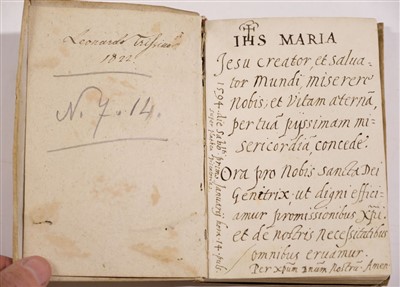 Leonardo
1822
N. 7. 14.
IHS MARIA
Jesu creator, et salua-
tor Mundi, miserere
Nobis, et Vitam æternã,
per tuã pijssimam mi-
sericordiã, concede.
Ora pro Nobis sancta Dei
Genitrix, ut digni effici-
amur promissionibus Xp̃i.
et de nostris Necessitatibus
omnibus eruamur.
Per xpum dnum Nostrũ. Amen
1594. die Sabb. primo Januarij hora 14.